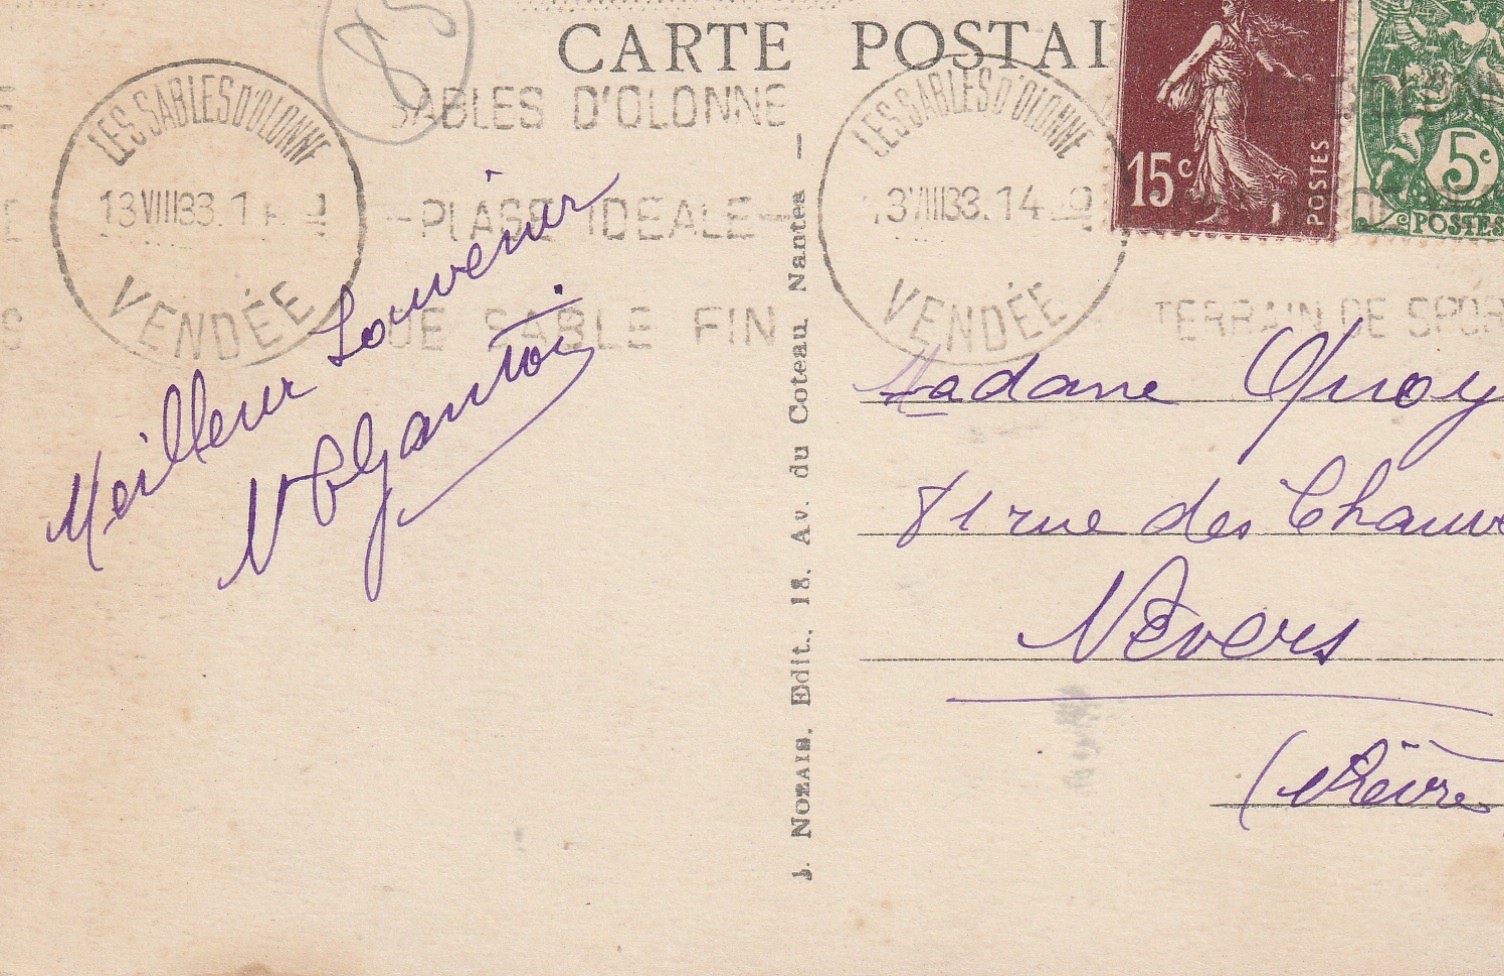 CARTE POSTAL
85
LES SABLES D'OLONNE
13 VIII 33. 1
VENDÉE
SABLES D'OLONNE
-PLAGE IDEALE-
DE SABLE FIN
LES SABLES D'OLONNE
13 VIII 33. 14
VENDÉE
TERRAIN DE SPOR
15c
POSTES
5c
POSTES
Meilleur Souvenir
J. NOZAIS, Edit., 18, Av. du Coteau, Nantes -
Madame Quoy
81 rue des Chauv
Nevers
(Nièvre